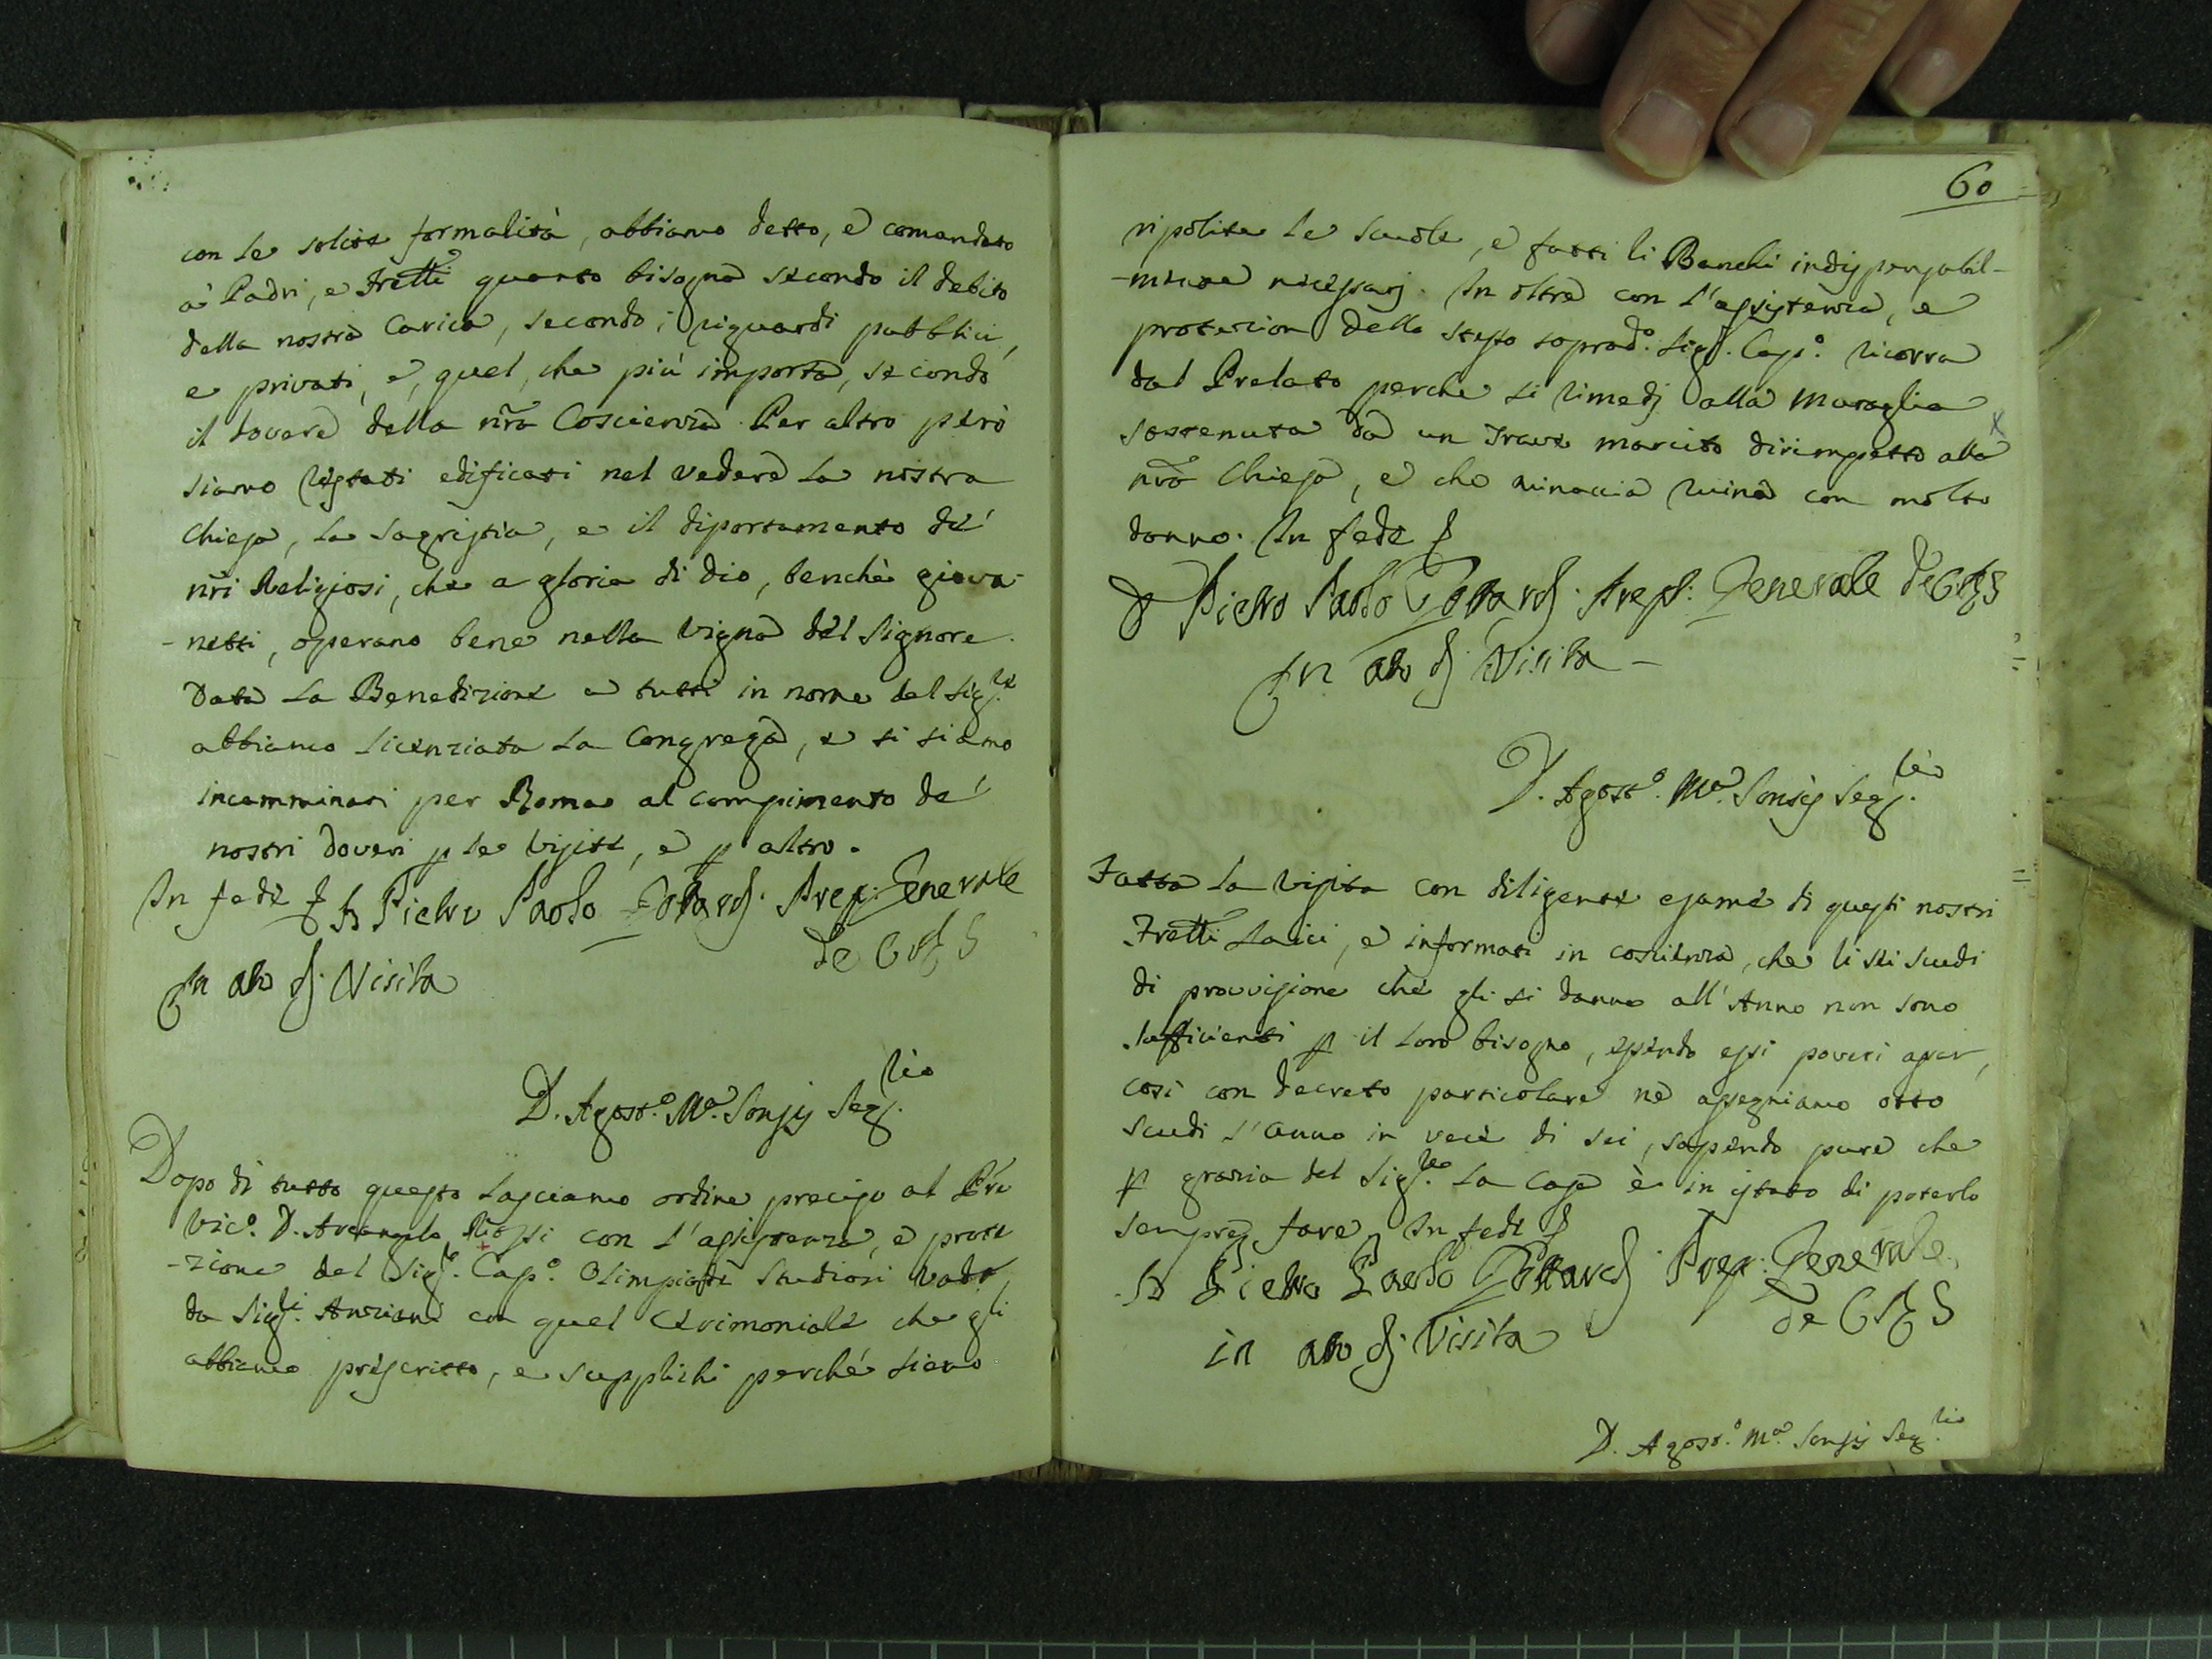 con le solite formalità, abbiamo detto, e comandato
a' Padri, e Frelli quanto bisogna secondo il debito
della nostra Carica, secondo i riguardi pubblici,
e privati, e, quel, che più importa, secondo
il dovere della nra Coscienza. Per altro però
siamo restati edificati nel vedere la nostra
Chiesa, la Sagrestia, e il diportamento de'
nri Religiosi, che a gloria di Dio, benchè giova-
-netti, operano bene nella Vigna del Signore.
Data la Benedizione a tutti in nome del Sig.re
abbiamo licenziata la Congrega, e si siamo
incamminati per Roma al compimento de'
nostri doveri p le visite, e p altro.
In fede
Pietro Paolo Prep. Generale
de C R S
In atto di Visita
D. Agost.o M.a Seg.rio
Dopo di tutto questo lasciamo ordine preciso al Pre
Vic.o D. Arcangelo con l'assistenza, e prote
-zione del Sig.re Cap.o Olimpiade Studiosi vada
da Sig.ri Anziani con quel Cerimoniale che gli
abbiamo prescritto, e supplichi perchè siano
60
ripolite le Scuole, e fatti li Banchi indispensabil-
-mente necessarj. In oltre con l'assistenza, e
protezion dello stesso soprad.o Sig.r Cap.o ricorra
dal Prelato perche si rimedj alla muraglia
sostenuta da un Trave marcito dirimpetto alla
nra Chiesa, e che minaccia ruina con molto
danno. In fede
D Pietro Paolo Prep. Generale de C R S
In atto di Visita
D. Agost.o M.a Seg.rio
Fatta la visita con diligente esame di questi nostri
Frelli Laici, e informati in coscienza, che li sei scudi
di provvisione che gli si danno all'Anno non sono
sufficienti p il loro bisogno, essendo essi poveri
così con decreto particolare ne assegniamo otto
scudi l'anno in vece di sei, sapendo pure che
p grazia del Sig.re la Casa è in istato di poterlo
sempre fare. In fede
D Pietro Paolo Prep. Generale
de C R S
in atto di Visita
D. Agost.o M.a Seg.rio